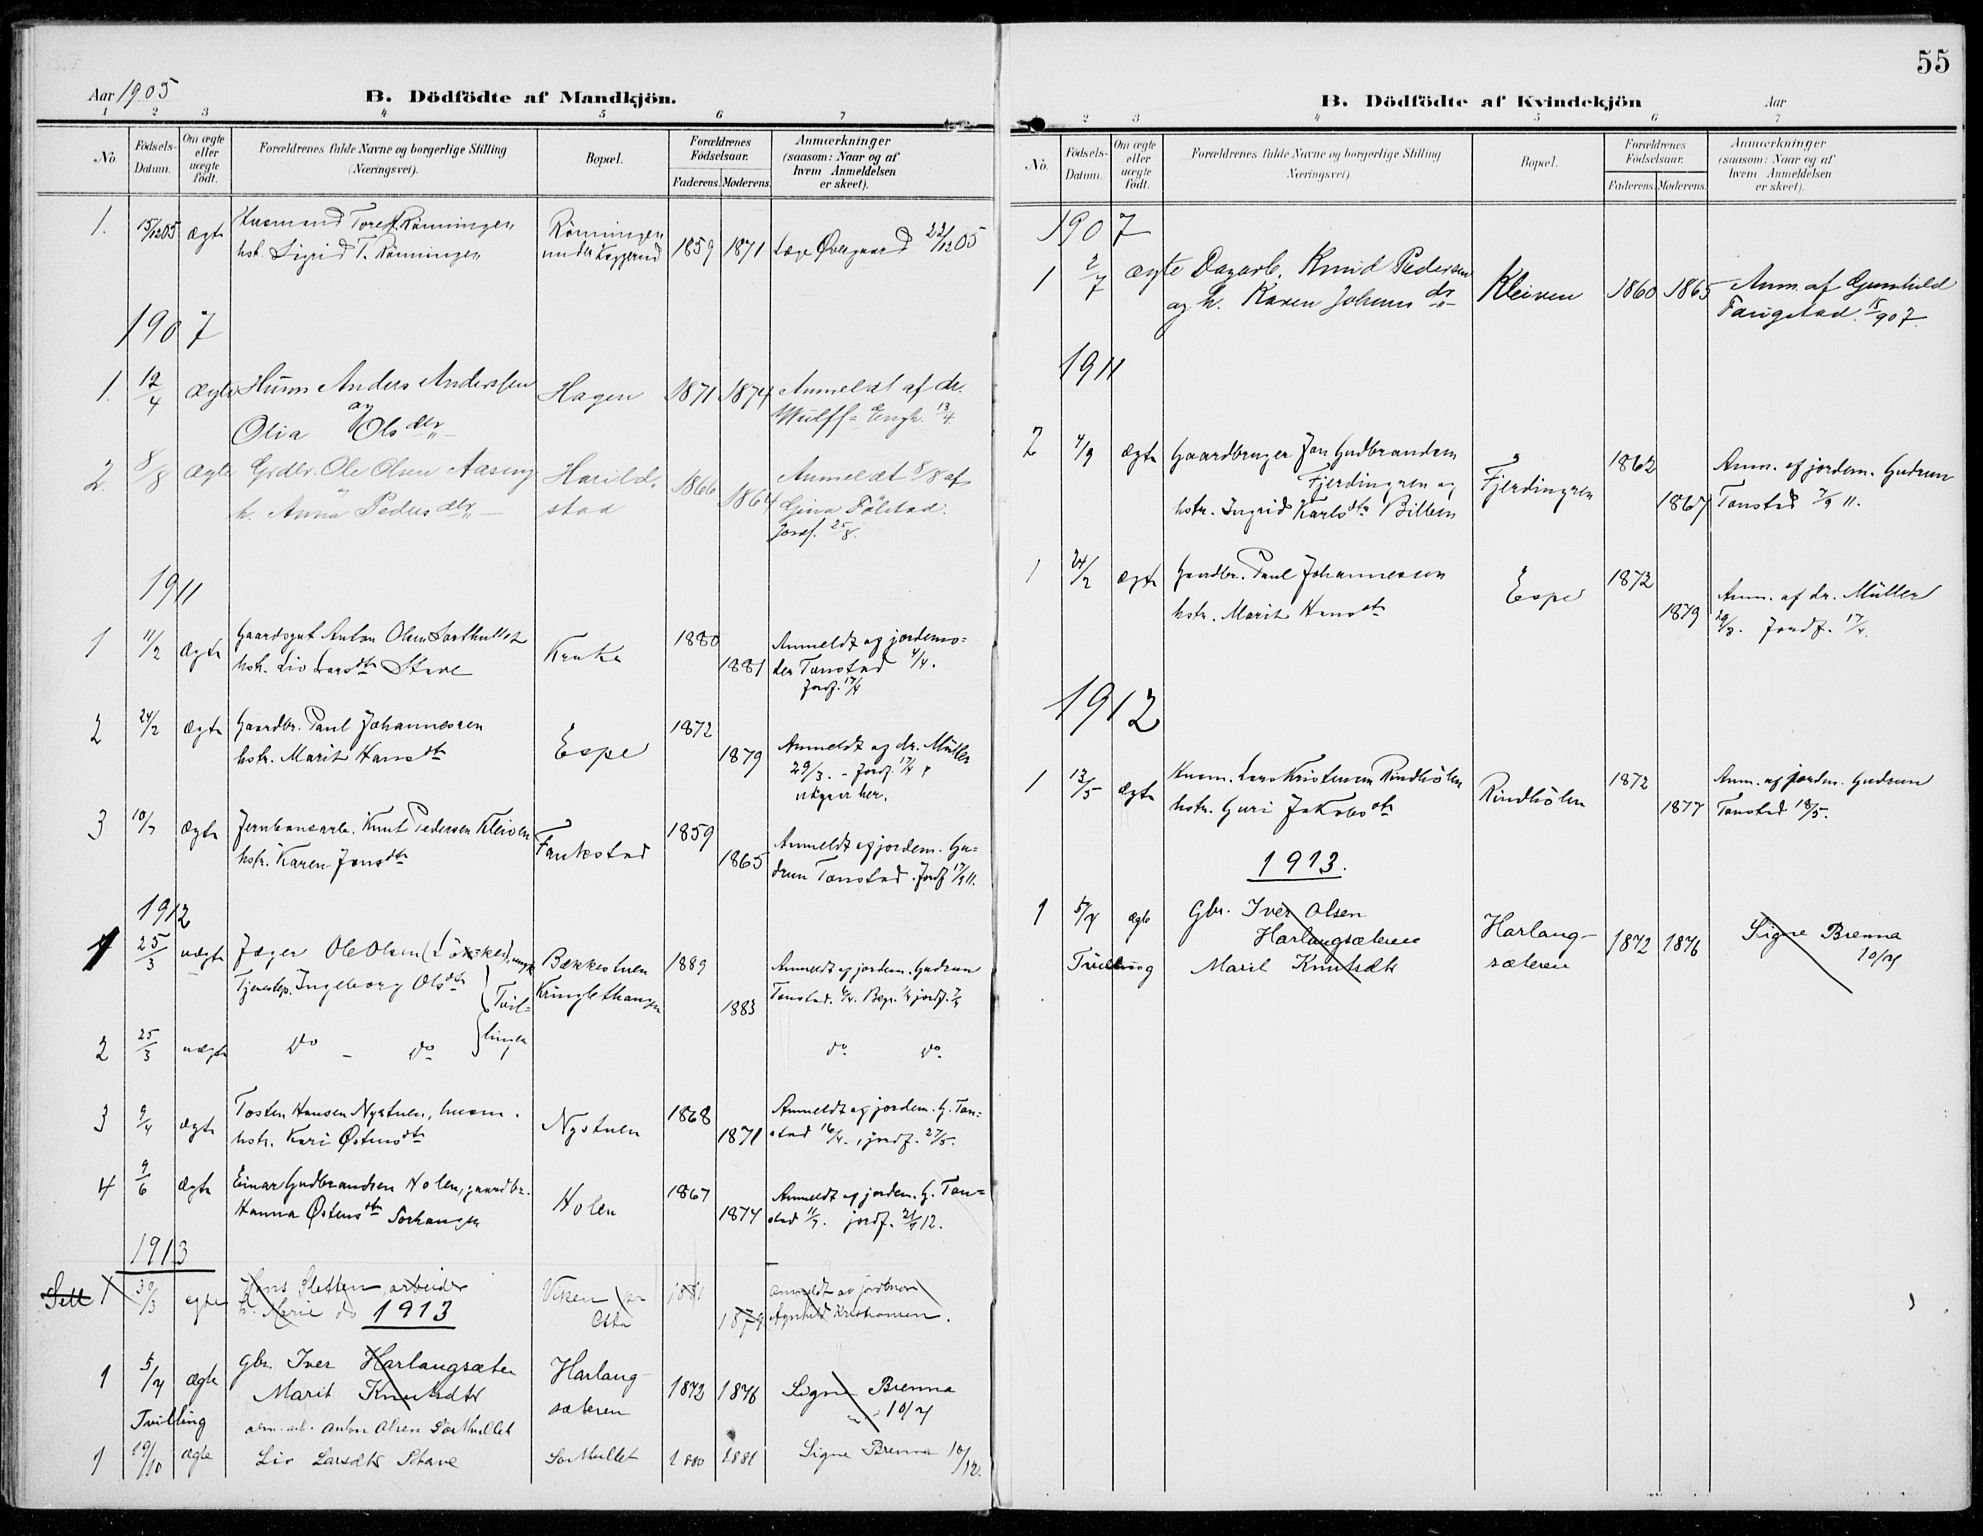 Aar 1905
B. Dödfödte af Mandkjön.
1 2 3 4 5 6 7
No.
Födsels-Datum.
Om ægte eller uægte födt.
Forældrenes fulde Navne og borgerlige Stilling (Næringsvei).
Bopæl.
Forældrenes Födselsaar.
Faderens. Moderens.
Anmærkninger (saasom: Naar og af hvem Anmeldelsen er skeet).
1. 15/12 05 ægte Husmand Tore Rönningen Rönningen 1859 1871 Læge Övergaard 22/12 05
hst. Sigrid T. Rönningen under
1907
1. 12/4 Ægte Husm Anders Anderssen Hagen 1871 1874 Anmeldt af dr.
og Wulff-Engh. 13/4.
Olia Olsdtr
2. 8/8 Ægte Grdbr. Ole Olsen Aaseng Harild- 1866 1864 Anmeldt 8/8 af
h. Anna Pedersdtr stad Gina Fölstad.
Jordf. 25/8.
1911
1 11/2 ægte Gaardsgut Anton Olsen Sorthullet Kruke 1880 Anmeldt af jordemo-
hstr. Liv Larsdtr Stave 1881 der Tanstad 4/4.
Jordf. 17/4
2 24/2 ægte Gaardbr. Paul Johannessen Espe 1872 Anmeldt af dr. Müller
hstr. Marit Hansdtr 1879 29/3. - Jordf. 17/4
utgaar her.
3 10/7 ægte Jernbanearb. Knut Pedersen Kleiven Faukstad 1859 Anmeldt af jordem. Gu-
hstr. Karen Jonsdtr 1865 drun Tanstad. Jordf 17/9 11.
1912
1 25/3 uægte Jæger Ole Olsen Bækkestuen 1889 Anmeldt af jordem. Gudrun
Tjenestep. Ingeborg Olsdtr Kringlethaugen 1883 Tanstad. Begr. jordf.
Tvil-
lingen
2 25/3 uægte do - do do do
3 9/4 ægte Tosten Hansen Nystuen, husm. Nystuen 1868 Anmeldt af jordem. G. Tan-
hstr. Kari Østensdtr 1871 stad 16/4., jordf. 27/5.
4 9/6 ægte Einar Gudbrandsen Holen, gaardbr. Holen 1867 Anmeldt af jordem. G. Tan-
Hanna Østensdtr Sorhaugen 1874 stad jordf. 12.
1913
Sell 1 30/3 egte Hans Sletten arbeider Viken pr 1881 anmeldt av jordmor
h. Marie do Otta 1879 Agnhild Kristiansen.
1913
1 5/4 ægte Gbr. Iver Harlangsæter Harlang- 1872 1876 Signe Brenna
Marit Knutsdtr sæteren 10/4
Tvilling
Anton Olsen Sorthullet
1 19/10 ægte Liv Larsdtr Stave Sorthullet 1880 1881 Signe Brenna 10/12.
55
B. Dödfödte af Kvindekjön
Aar
2 3 4 5 6 7
No.
Födsels-Datum.
Om ægte eller uægte födt.
Forældrenes fulde Navne og borgerlige Stilling (Næringsvei).
Bopæl.
Forældrenes Födselsaar.
Faderens. Moderens.
Anmærkninger (saasom: Naar og af hvem Anmeldelsen er skeet).
1907
1 2/7 ægte Dagarb. Knud Pedersen Kleiven 1860 1865 Anm. af Gunhild
og h. Karen Johansdtr Faugstad. 15/7 907.
1911
2 4/9 ægte Gaardbruger Jon Gudbrandsen Fjerdingren 1862 Anm. af jordem. Gudrun
Fjerdingren og
hstr. Ingrid Karlsdtr Billem 1867 Tanstad 7/9 11.
1 24/2 ægte Gaardbr. Paul Johannessen Espe 1872 Anm. af dr. Müller
hstr. Marit Hansdtr 1879 29/3. Jordf. 17/4.
1912
1 13/5 ægte Husm. Lars Kristensen Rindhölen Rindhölen 1872 Anm. af jordem. Gudrun
hstr. Guri Jakobsdtr 1877 Tanstad 18/5.
1913.
1 5/4 ægte Gbr. Iver Olsen Harlang- 1872 1876 Signe Brenna
Harlangsæteren sæteren 10/4
Tvilling Marit Knutsdtr